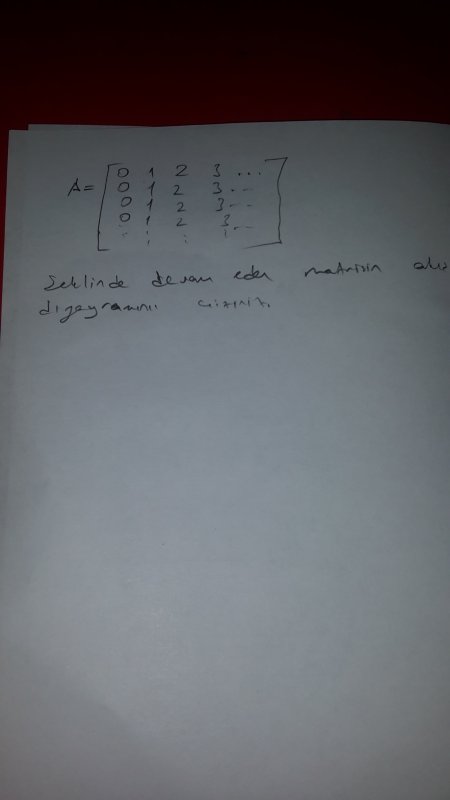 A = 0 1 2 3 ...
0 1 2 3 ..
0 1 2 3 ..
0 1 2 3 ..
: : : :
Şeklinde devam eden matrisin akış
diyagramını çiziniz.